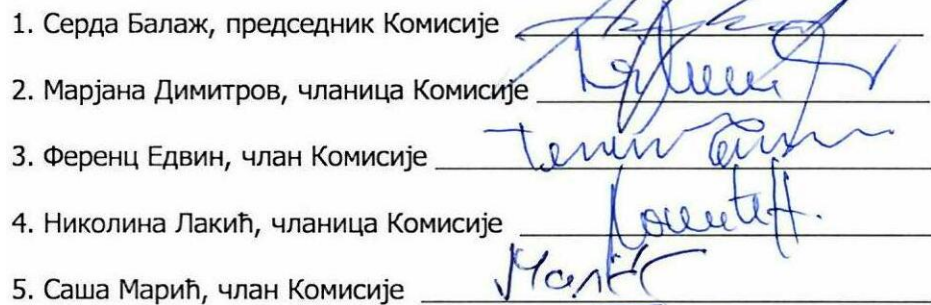 1. Серда Балаж, председник Комисије
2. Марјана Димитров, чланица Комисије
3. Ференц Едвин, члан Комисије
4. Николина Лакић, чланица Комисије
5. Саша Марић, члан Комисије